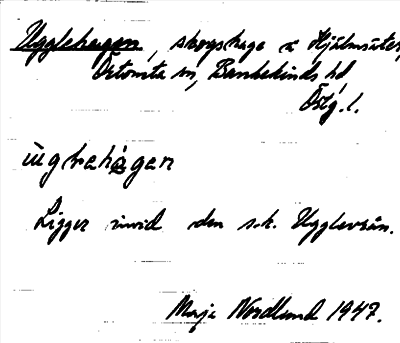 Ugglehagen, skogshage i Hjälmsäter,
Örtomta sn, Bankekinds hd
Östg. l.
ùglεhágεn
Ligger invid den s.k. Uggleviån.
Maja Nordlund 1947.